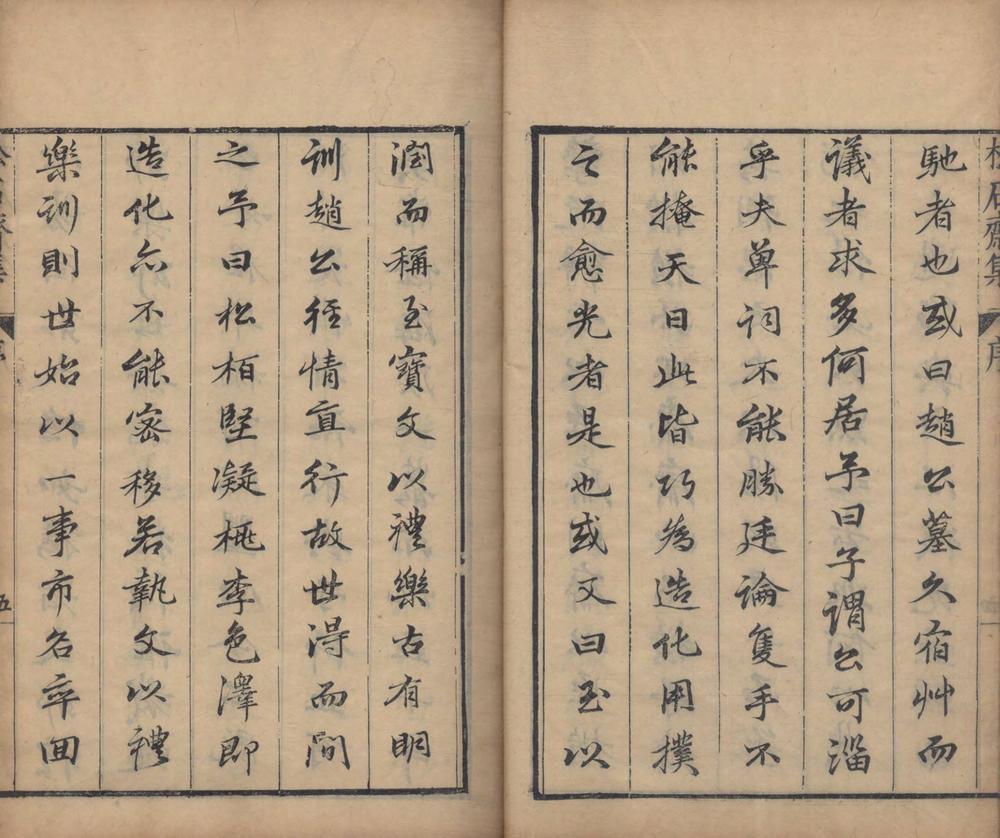 馳者也或曰趙公墓久宿艸而
議者求多何居予曰子謂公可淄
乎夫單詞不能勝廷論隻手不
能掩天日此皆巧為造化用撲
之而愈光者是也或又曰玉以
潤而稱至寶文以禮樂古有明
訓趙公徑情直行故世得而間
之予曰松栢堅凝桃李色澤即
造化亦不能密移若執文以禮
樂訓則世始以一事市名卒回
齋集 序
五